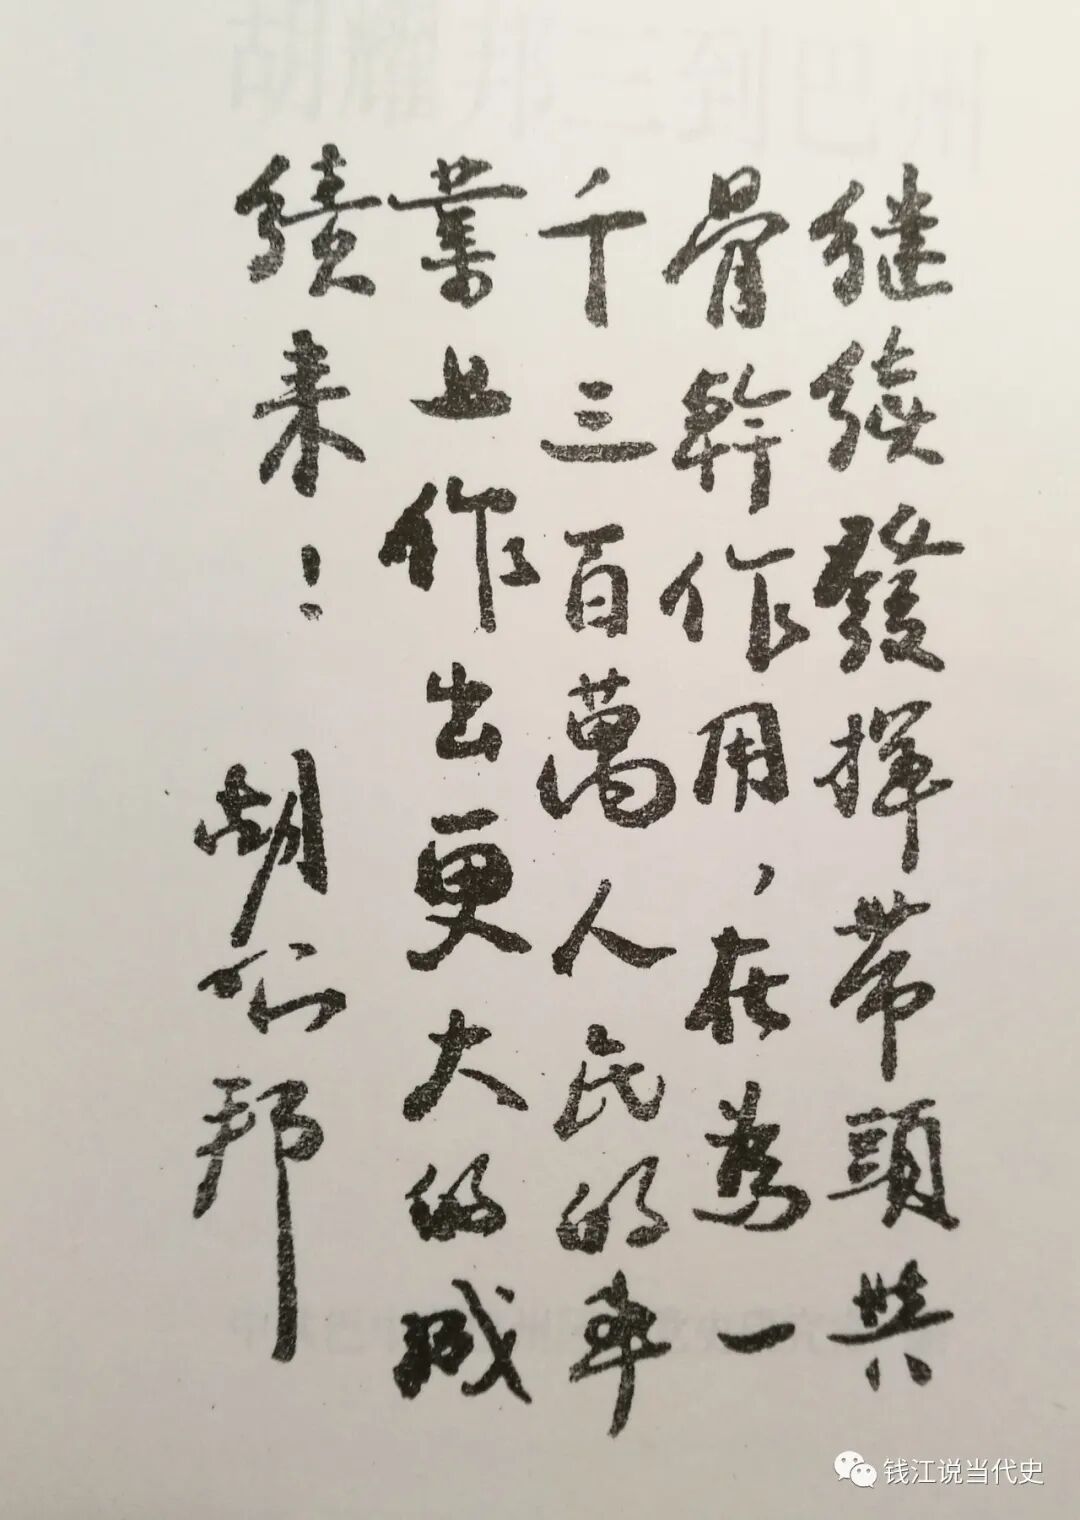 继续發挥带頭與
骨幹作用，在為一
千三百萬人民的事
業上作出更大的成
績来！
胡耀邦
钱江说当代史